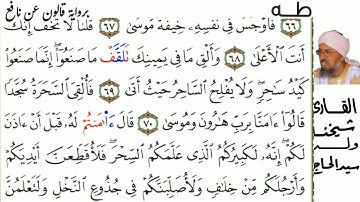 طه برواية قالون عن نافع
٦٦ فَأَوْجَسَ فِي نَفْسِهِۦ خِيفَةً مُّوسَىٰ ٦٧ قُلْنَا لَا تَخَفْ إِنَّكَ
أَنتَ ٱلْأَعْلَىٰ ٦٨ وَأَلْقِ مَا فِي يَمِينِكَ تَلَقَّفْ مَا صَنَعُوٓا۟ إِنَّمَا صَنَعُوا۟
كَيْدُ سَٰحِرٍ وَلَا يُفْلِحُ ٱلسَّاحِرُ حَيْثُ أَتَىٰ ٦٩ فَأُلْقِيَ ٱلسَّحَرَةُ سُجَّدًا
قَالُوٓا۟ ءَامَنَّا بِرَبِّ هَٰرُونَ وَمُوسَىٰ ٧٠ قَالَ ءَا۬مَنتُمْ لَهُۥ قَبْلَ أَنْ ءَاذَنَ
لَكُمْ إِنَّهُۥ لَكَبِيرُكُمُ ٱلَّذِي عَلَّمَكُمُ ٱلسِّحْرَ فَلَأُقَطِّعَنَّ أَيْدِيَكُمْ
وَأَرْجُلَكُم مِّنْ خِلَٰفٍ وَلَأُصَلِّبَنَّكُمْ فِي جُذُوعِ ٱلنَّخْلِ وَلَتَعْلَمُنَّ
القارئ
شيخنا
ولد
سيد الحاج